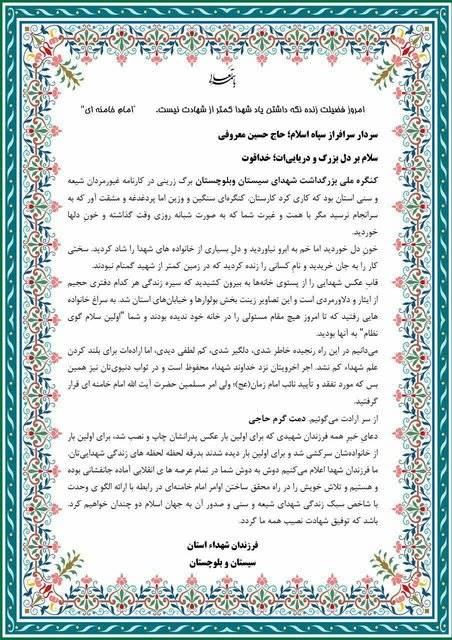 باسمه تعالی
امروز فضیلت زنده نگه داشتن یاد شهدا کمتر از شهادت نیست. "امام خامنه ای"
سردار سرافراز سپاه اسلام؛ حاج حسین معروفی
سلام بر دل بزرگ و دریایی‌ات؛ خداقوت
کنگره ملی بزرگداشت شهدای سیستان وبلوچستان برگ زرینی در کارنامه غیورمردان شیعه
و سنی استان بود که کاری کرد کارستان. کنگره‌ای سنگین و وزین اما پردغدغه و مشقت آور که به
سرانجام نرسید مگر با همت و غیرت شما که به صورت شبانه روزی وقت گذاشته و خونِ دلها
خوردید.
خون دل خوردید اما خم به ابرو نیاوردید و دل بسیاری از خانواده های شهدا را شاد کردید. سختی
کار را به جان خریدید و نامِ کسانی را زنده کردید که در زمین کمتر از شهید گمنام نبودند.
قابِ عکس شهدایی را از پستوی خانه‌ها به بیرون کشیدید که سیره زندگی هر کدام دفتری حجیم
از ایثار و دلاورمردی است و این تصاویر زینت بخش بولوارها و خیابان‌های استان شد. به سراغ خانواده
هایی رفتید که تا امروز هیچ مقام مسئولی را در خانه خود ندیده بودند و شما "اولین سلام گوی
نظام" به آنها بودید.
می‌دانیم در این راه رنجیده خاطر شدی، دلگیر شدی، کم لطفی دیدی، اما اراده‌ات برای بلند کردن
علم شهداء کم نشد. اجر اخرویتان نزد خداوند شهداء محفوظ است و در ثواب دنیوی‌تان نیز همین
بس که مورد تفقد و تأیید نائب امام زمان(عج)؛ ولی امر مسلمین حضرت آیت الله امام خامنه ای قرار
گرفتید.
از سر ارادت می‌گوئیم. دمت گرم حاجی
دعای خیرِ همه فرزندان شهیدی که برای اولین بار عکس پدرانشان چاپ و نصب شد، برای اولین بار
از خانواده‌شان سرکشی شد و برای اولین بار دیده شدند بدرقه لحظه لحظه های زندگی شهدایی‌تان.
ما فرزندان شهدا اعلام می‌کنیم دوش به دوش شما در تمام عرصه ها ی انقلابی آماده جانفشانی بوده
و هستیم و تلاش خویش را در راه محقق ساختن اوامر امام خامنه‌ای در رابطه با ارائه الگو ی وحدت
با شاخص سبک زندگی شهدای شیعه و سنی و صدور آن به جهان اسلام دو چندان خواهیم کرد.
باشد که توفیق شهادت نصیب همه ما گردد.
فرزندان شهداء استان
سیستان و بلوچستان